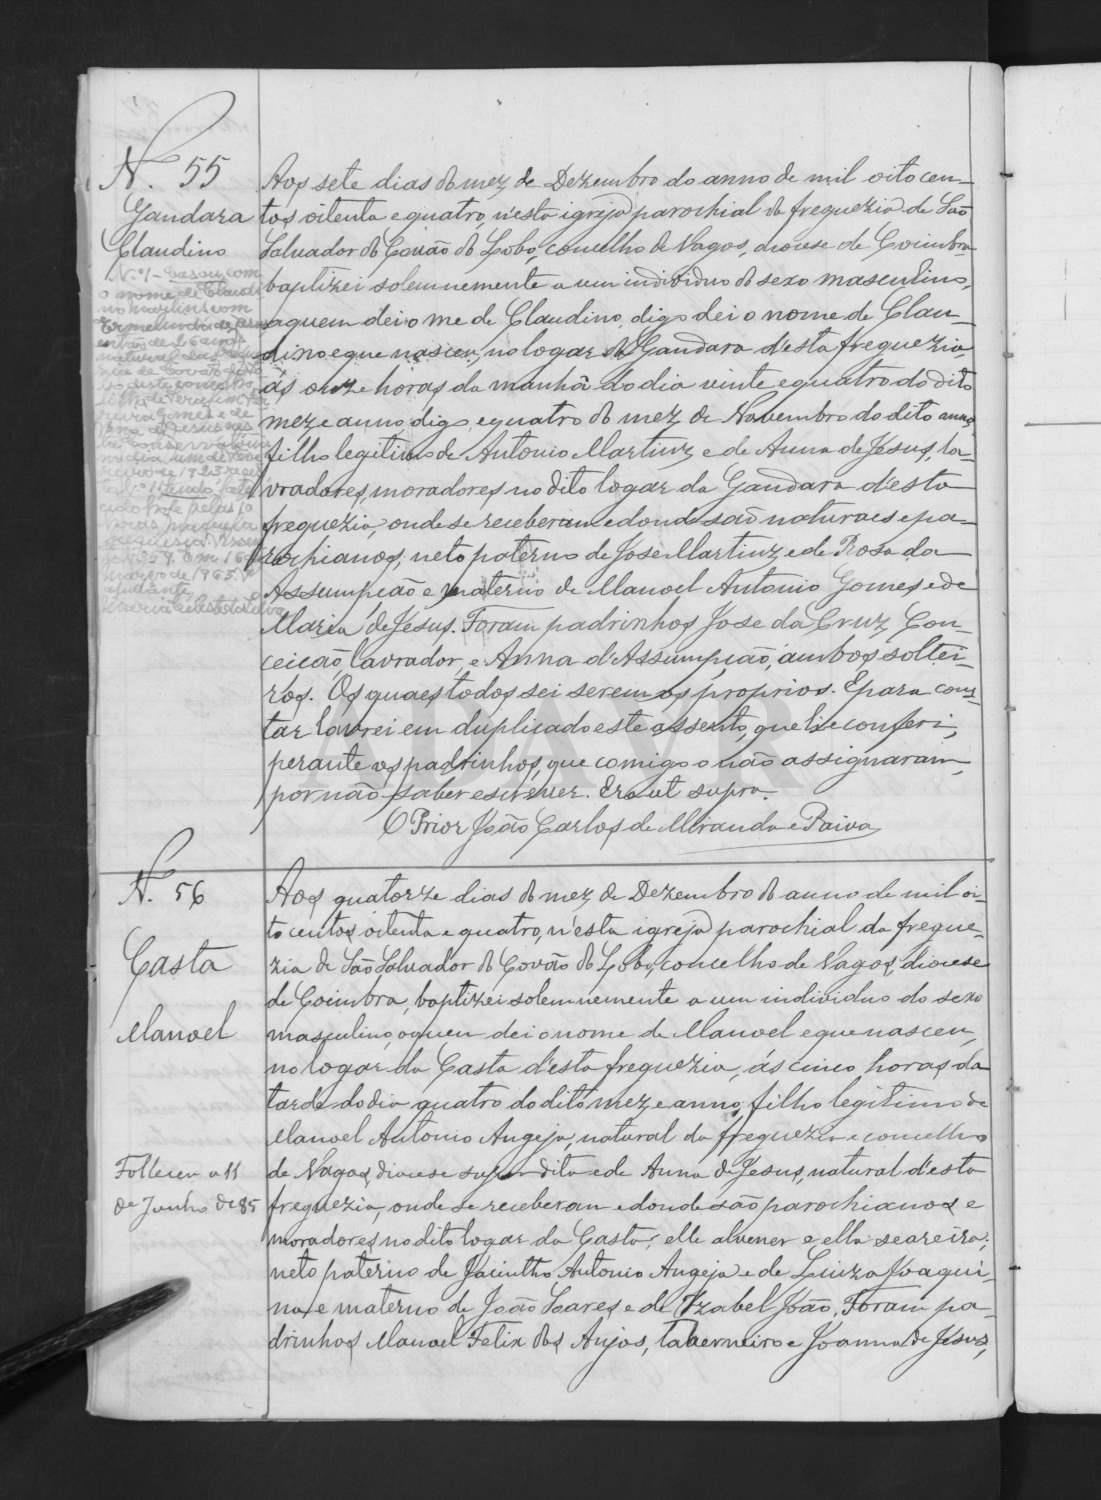 N. 55
Gandara
Claudino
N.º 1 - Casou com
o nome de Claudi
no Martins com
natural da fregue
sia de Covão do Lo
bo deste concelho
filha de
Gomes e de
de Jesus
Aos sete dias do mez de Dezembro do anno de mil oito cen-
tos oitenta e quatro, n'esta igreja parochial da freguezia de São
Salvador do Covão do Lobo, concelho de Vagos, diocese de Coimbra
baptizei solemnemente a um individuo do sexo masculino,
a quem dei o me de Claudino, digo dei o nome de Clau-
dino e que nasceu, no logar da Gandara d'esta freguezia,
ás onze horas da manhã do dia vinte e quatro do dito
mez e anno, digo, e quatro do mez de Novembro do dito anno,
filho legitimo de Antonio Martinz e de Anna de Jesus, la-
vradores, moradores no dito logar da Gandara d'esta
freguezia, onde se receberam e donde são naturaes e pa-
rochianos, neto paterno de Jose Martinz e de Rosa da
Assumpcão e materno de Manoel Antonio Gomes e de
Maria de Jesus. Foram padrinhos Jose da Cruz Con-
ceicão, lavrador, e Anna d'Assumpcão, ambos soltei-
ros. Os quaes todos sei serem os proprios. E para cons-
tar lavrei em duplicado este assento, que li e conferi,
perante os padrinhos, que comigo o não assignaram,
por não saber escrever. Era ut supra.
O Prior João Carlos de Miranda e Paiva
N. 56
Casta
Manoel
Falleceu a 11
de Junho de 85
Aos quatorze dias do mez de Dezembro do anno de mil oi-
to centos oitenta e quatro, n'esta igreja parochial da fregue-
zia de São Salvador do Covão do Lobo, concelho de Vagos, diocese
de Coimbra, baptizei solemnemente a um individuo do sexo
masculino, a quem dei o nome de Manoel e que nasceu,
no logar da Casta d'esta freguezia, ás cinco horas da
tarde do dia quatro do dito mez e anno, filho legitimo de
Manoel Antonio Angeja, natural da freguezia e concelho
de Vagos, diocese supra dita e de Anna de Jesus, natural d'esta
freguezia, onde se receberam e donde são parochianos e
moradores no dito logar da Casta, elle alvener e ella seareira;
neto paterno de Jacintho Antonio Angeja e de Luiza Joaqui-
na, e materno de João Soares e de Izabel João. Foram pa-
drinhos Manoel Felix dos Anjos, taberneiro e Joanna de Jesus,